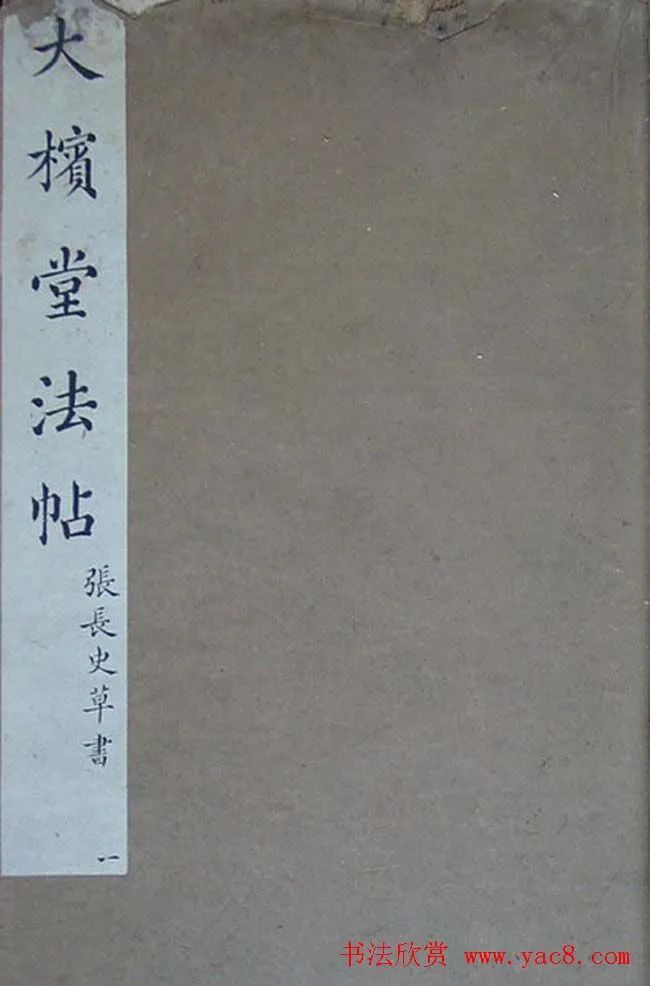 大檳堂法帖
張長史草書
一
书法欣赏 www.yac8.com